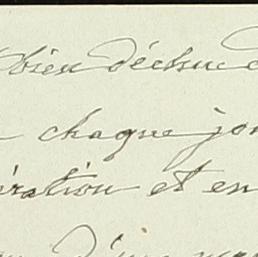 bien déchue
chaque jou
ération et en
d'une